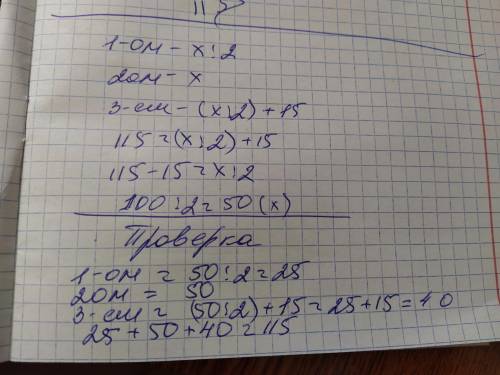 1-ом - x:2
2ом - x
3-ем - (x:2) + 15
115 = (x:2) + 15
115 - 15 = x:2
100:2 = 50 (x)
Проверка
1-ом = 50:2 = 25
2ом = 50
3-ем = (50:2) + 15 = 25 + 15 = 40
25 + 50 + 40 = 115